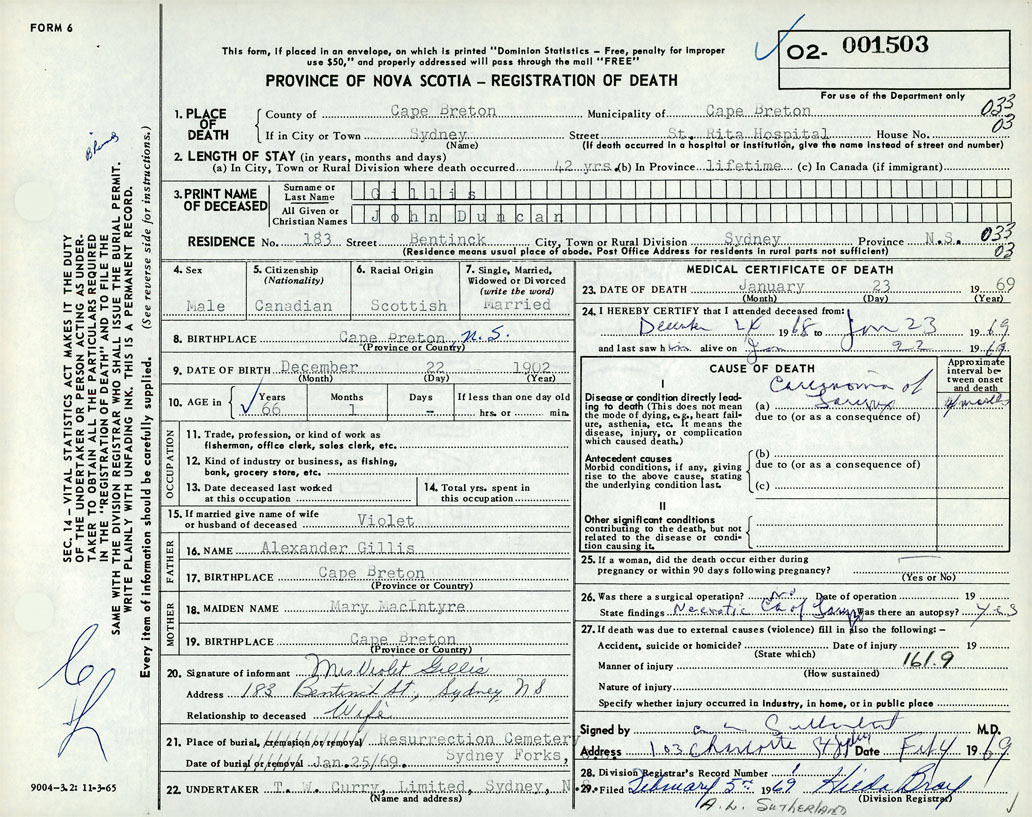 FORM 6
This form, if placed in an envelope, on which is printed "Dominion Statistics – Free, penalty for improper
use $50," and properly addressed will pass through the mail "FREE"
O2- 001503
For use of the Department only
PROVINCE OF NOVA SCOTIA – REGISTRATION OF DEATH
SEC. 14 – VITAL STATISTICS ACT MAKES IT THE DUTY
OF THE UNDERTAKER OR PERSON ACTING AS UNDER-
TAKER TO OBTAIN ALL THE PARTICULARS REQUIRED
IN THE "REGISTRATION OF DEATH" AND TO FILE THE
SAME WITH THE DIVISION REGISTRAR WHO SHALL ISSUE THE BURIAL PERMIT.
WRITE PLAINLY WITH UNFADING INK. THIS IS A PERMANENT RECORD.
Every item of information should be carefully supplied. (See reverse side for instructions.)
1. PLACE OF DEATH
County of Cape Breton Municipality of Cape Breton 033
If in City or Town Sydney Street St. Rita Hospital House No. 03
(Name) (If death occurred in a hospital or institution, give the name instead of street and number)
2. LENGTH OF STAY (in years, months and days)
(a) In City, Town or Rural Division where death occurred 42 yrs. (b) In Province lifetime (c) In Canada (if immigrant)
3. PRINT NAME OF DECEASED
Surname or Last Name Gillis
All Given or Christian Names John Duncan
RESIDENCE No. 183 Street Bentinck City, Town or Rural Division Sydney Province N.S. 033
(Residence means usual place of abode. Post Office Address for residents in rural parts not sufficient) 03
4. Sex Male
5. Citizenship (Nationality) Canadian
6. Racial Origin Scottish
7. Single, Married, Widowed or Divorced (write the word) Married
8. BIRTHPLACE Cape Breton N.S.
(Province or Country)
9. DATE OF BIRTH December 22 1902
(Month) (Day) (Year)
10. AGE in Years 66 Months 1 Days – If less than one day old hrs. or min.
OCCUPATION
11. Trade, profession, or kind of work as
fisherman, office clerk, sales clerk, etc.
12. Kind of industry or business, as fishing,
bank, grocery store, etc.
13. Date deceased last worked
at this occupation
14. Total yrs. spent in
this occupation
15. If married give name of wife
or husband of deceased Violet
FATHER
16. NAME Alexander Gillis
17. BIRTHPLACE Cape Breton
(Province or Country)
MOTHER
18. MAIDEN NAME Mary MacIntyre
19. BIRTHPLACE Cape Breton
(Province or Country)
20. Signature of informant Mrs Violet Gillis
Address 183 Bentinck St, Sydney NS
Relationship to deceased Wife
21. Place of burial, cremation or removal Resurrection Cemetery
Date of burial or removal Jan.25/69. Sydney Forks,
22. UNDERTAKER T. W. Curry, Limited, Sydney, N.S.
(Name and address)
9004-3.2: 11-3-65
MEDICAL CERTIFICATE OF DEATH
23. DATE OF DEATH January 23 1969
(Month) (Day) (Year)
24. I HEREBY CERTIFY that I attended deceased from:
1968 to Jan 23 1969
and last saw him alive on Jan 22 1969
CAUSE OF DEATH
Approximate interval between onset and death
I
Disease or condition directly leading to death (This does not
mean the mode of dying, e.g., heart failure, asthenia, etc. It means the
disease, injury, or complication
which caused death.)
(a) Carcinoma of Larynx
due to (or as a consequence of)
Antecedent causes
Morbid conditions, if any, giving
rise to the above cause, stating
the underlying condition last.
(b)
due to (or as a consequence of)
(c)
II
Other significant conditions
contributing to the death, but not
related to the disease or condition
causing it.
25. If a woman, did the death occur either during
pregnancy or within 90 days following pregnancy?
(Yes or No)
26. Was there a surgical operation? no Date of operation 19
State findings Necrotic Ca of Larynx Was there an autopsy? Yes
27. If death was due to external causes (violence) fill in also the following: –
Accident, suicide or homicide? Date of injury 19
(State which)
161.9
Manner of injury
(How sustained)
Nature of injury
Specify whether injury occurred in industry, in home, or in public place
Signed by M.D.
Address 103 Charlotte St Date Feb 4 1969
28. Division Registrar's Record Number
29. Filed February 5th 1969 Hilda Bray
(Division Registrar)
A. L. SUTHERLAND